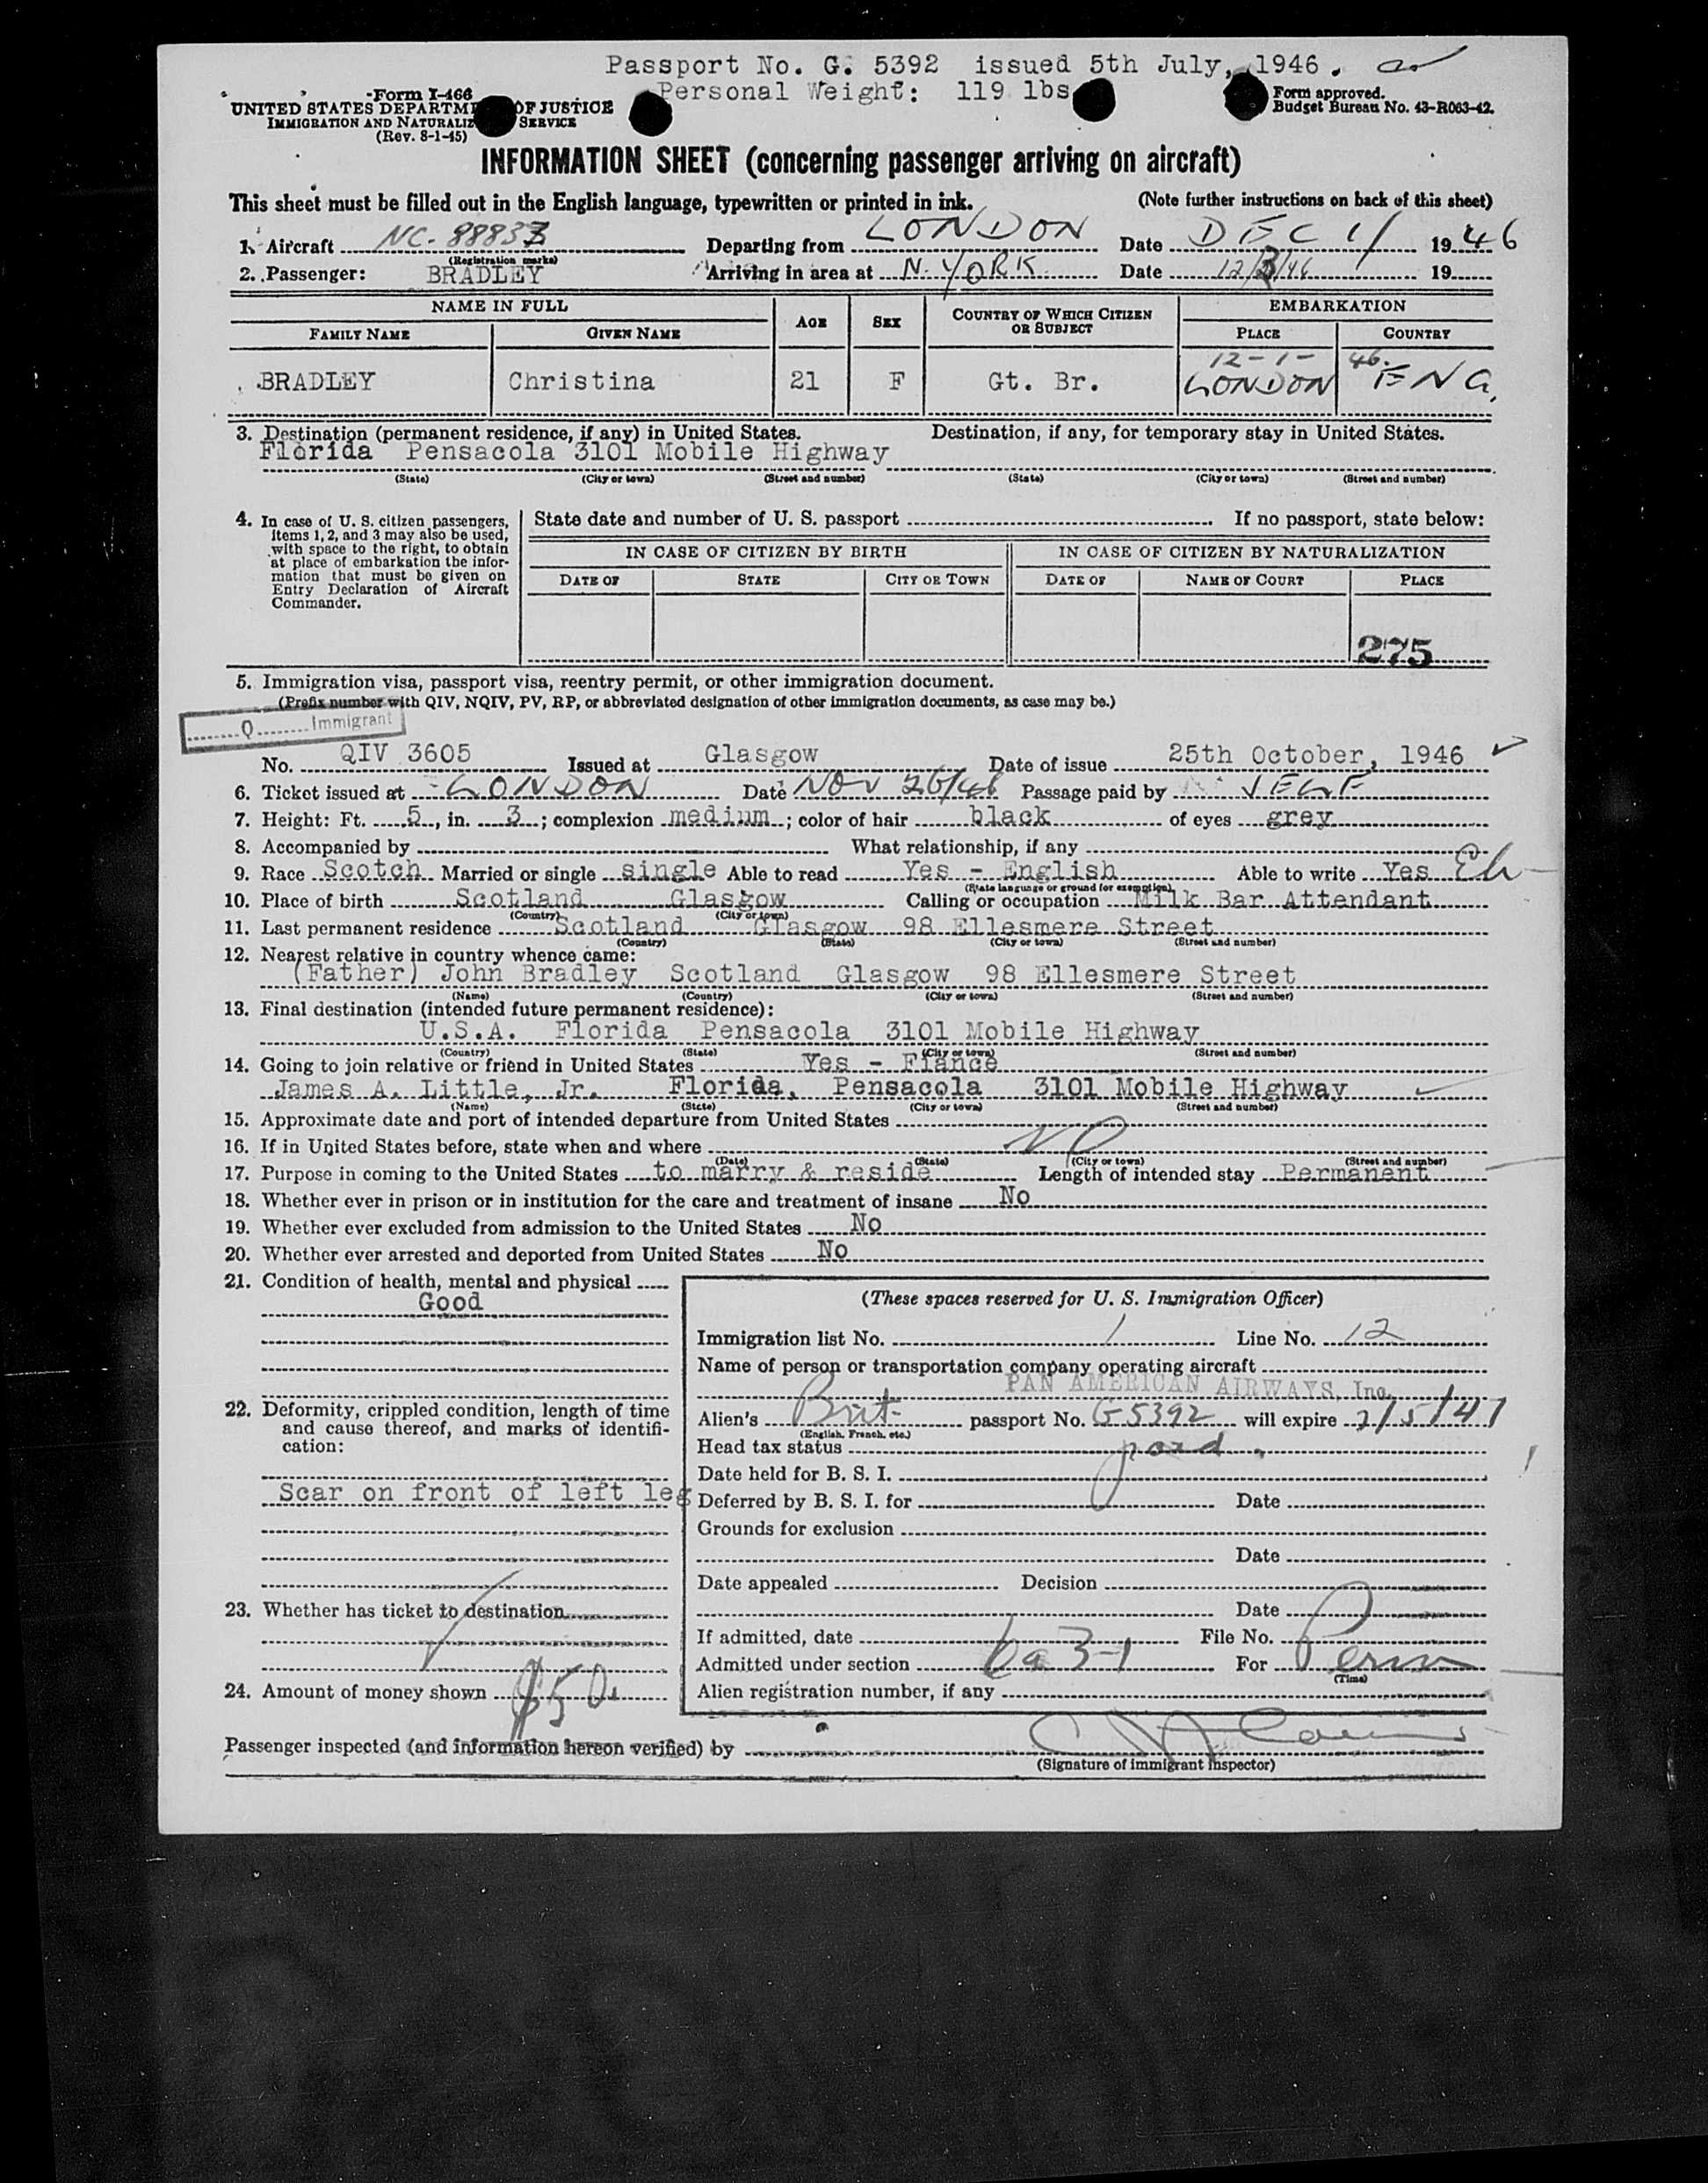 Passport No. G. 5392 issued 5th July, 1946.
Personal Weight: 119 lbs
Form I-466
UNITED STATES DEPARTME OF JUSTICE
IMMIGRATION AND NATURALIZ SERVICE
(Rev. 8-1-45)
Form approved.
Budget Bureau No. 43-R063-42.
INFORMATION SHEET (concerning passenger arriving on aircraft)
This sheet must be filled out in the English language, typewritten or printed in ink. (Note further instructions on back of this sheet)
1. Aircraft NC-88833 Departing from LONDON Date DEC 1/ 1946
(Registration marks)
2. Passenger: BRADLEY Arriving in area at N. YORK Date 12/3/46 19
NAME IN FULL AGE SEX COUNTRY OF WHICH CITIZEN OR SUBJECT EMBARKATION
FAMILY NAME GIVEN NAME PLACE COUNTRY
12-1-46.
BRADLEY Christina 21 F Gt. Br. LONDON ENG.
3. Destination (permanent residence, if any) in United States. Destination, if any, for temporary stay in United States.
Florida Pensacola 3101 Mobile Highway
(State) (City or town) (Street and number) (State) (City or town) (Street and number)
4. In case of U. S. citizen passengers,
items 1, 2, and 3 may also be used,
with space to the right, to obtain
at place of embarkation the infor-
mation that must be given on
Entry Declaration of Aircraft
Commander.
State date and number of U. S. passport If no passport, state below:
IN CASE OF CITIZEN BY BIRTH IN CASE OF CITIZEN BY NATURALIZATION
DATE OF STATE CITY OR TOWN DATE OF NAME OF COURT PLACE
275
5. Immigration visa, passport visa, reentry permit, or other immigration document.
(Prefix number with QIV, NQIV, PV, RP, or abbreviated designation of other immigration documents, as case may be.)
Q Immigrant
No. QIV 3605 Issued at Glasgow Date of issue 25th October, 1946
6. Ticket issued at LONDON Date NOV 26/46 Passage paid by
7. Height: Ft. 5, in. 3; complexion medium; color of hair black of eyes grey
8. Accompanied by What relationship, if any
9. Race Scotch Married or single single Able to read Yes - English Able to write Yes
(State language or ground for exemption)
10. Place of birth Scotland Glasgow Calling or occupation Milk Bar Attendant
(Country) (City or town)
11. Last permanent residence Scotland Glasgow 98 Ellesmere Street
(Country) (State) (City or town) (Street and number)
12. Nearest relative in country whence came:
(Father) John Bradley Scotland Glasgow 98 Ellesmere Street
(Name) (Country) (City or town) (Street and number)
13. Final destination (intended future permanent residence):
U.S.A. Florida Pensacola 3101 Mobile Highway
(Country) (State) (City or town) (Street and number)
14. Going to join relative or friend in United States Yes - Fiance
James A. Little, Jr. Florida, Pensacola 3101 Mobile Highway
(Name) (State) (City or town) (Street and number)
15. Approximate date and port of intended departure from United States
16. If in United States before, state when and where NO
(Date) (State) (City or town) (Street and number)
17. Purpose in coming to the United States to marry & reside Length of intended stay Permanent
18. Whether ever in prison or in institution for the care and treatment of insane No
19. Whether ever excluded from admission to the United States No
20. Whether ever arrested and deported from United States No
21. Condition of health, mental and physical
Good
22. Deformity, crippled condition, length of time
and cause thereof, and marks of identifi-
cation:
Scar on front of left leg
23. Whether has ticket to destination
24. Amount of money shown $50
(These spaces reserved for U. S. Immigration Officer)
Immigration list No. 1 Line No. 12
Name of person or transportation company operating aircraft
PAN AMERICAN AIRWAYS, Inc.
Alien's Brit passport No. G5392 will expire 7/5/47
(English, French, etc.)
Head tax status paid
Date held for B. S. I.
Deferred by B. S. I. for Date
Grounds for exclusion
Date
Date appealed Decision
Date
If admitted, date File No.
Admitted under section 6a 3-1 For Perm
(Time)
Alien registration number, if any
Passenger inspected (and information hereon verified) by
(Signature of immigrant inspector)